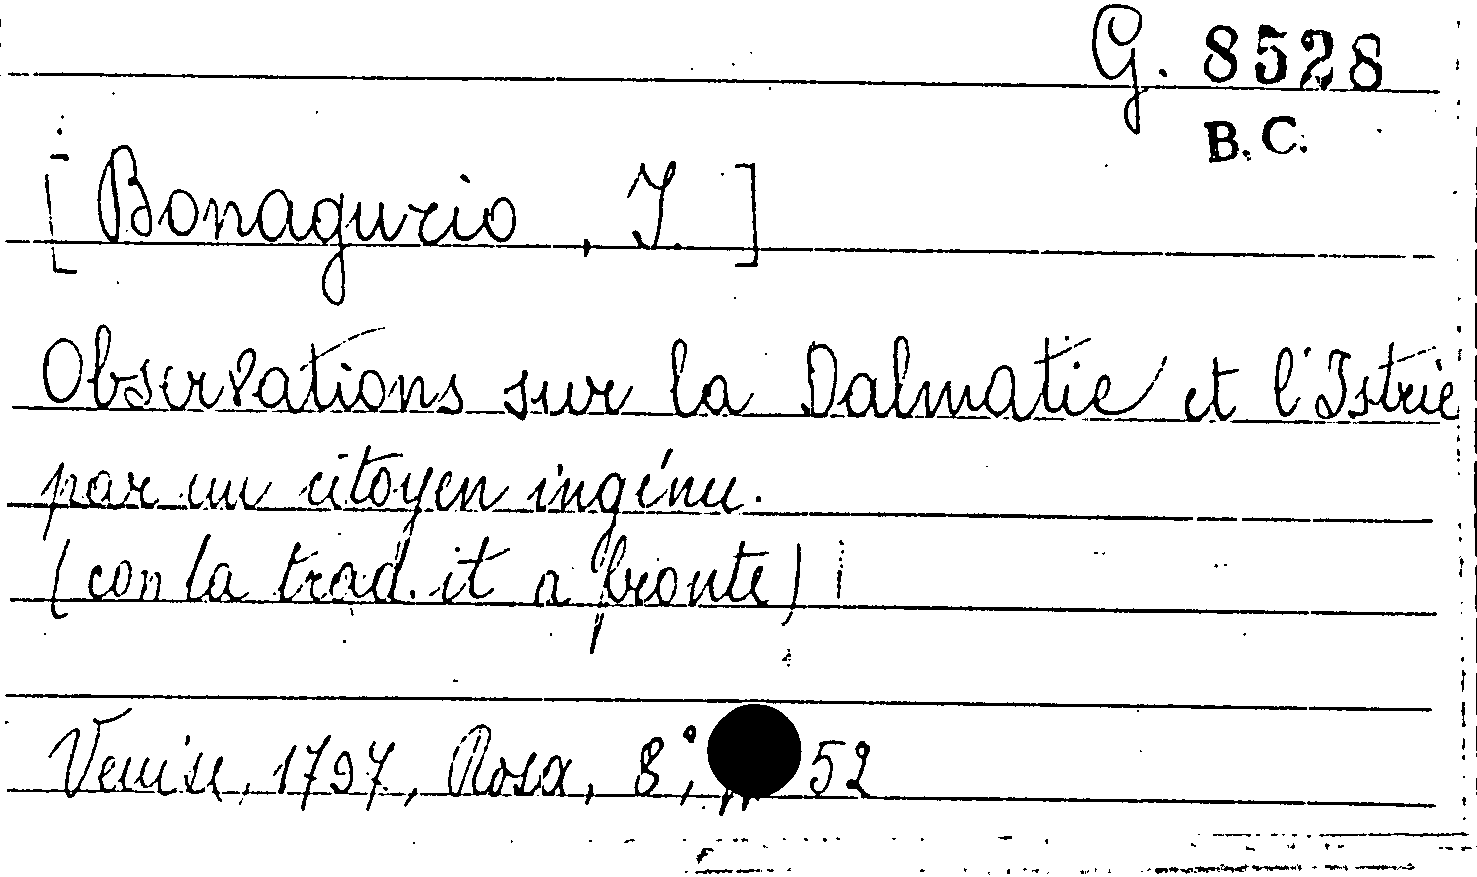 G. 8528
B.C.
[Bonagurio, I.]
Observations sur la Dalmatie et l'Istrie
par un citoyen ingénu.
(con la trad. it a fronte)
Venise, 1797, Rosa, 8°, 52